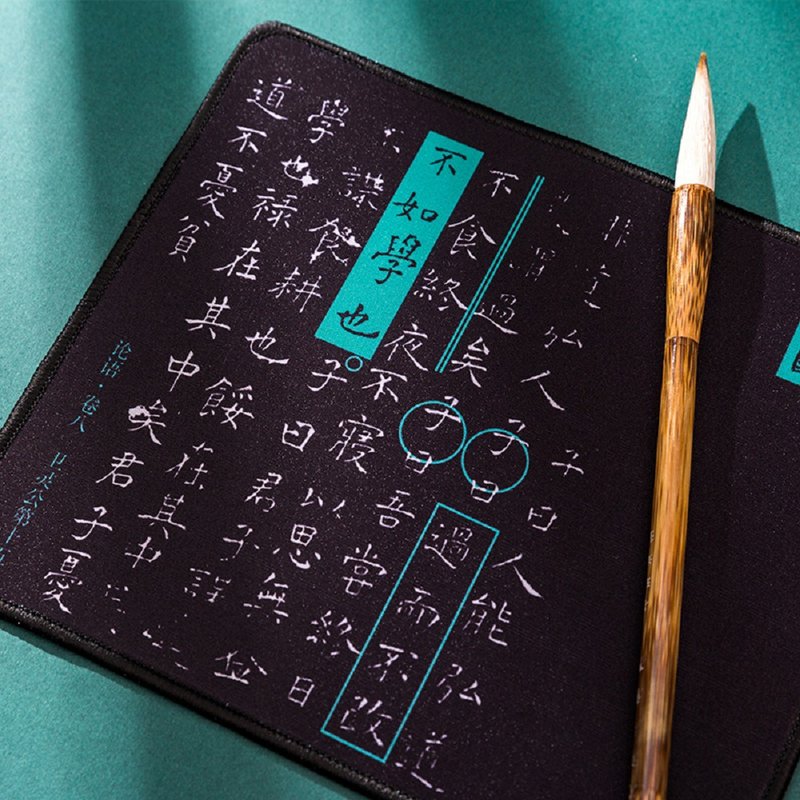 子曰人能弘道
弘人子曰過而不改
謂過矣子曰吾嘗終日
不食終夜不寢以思無益
不如學也。子曰君子謀
不謀食耕也餒在其中
學也祿在其中矣君子憂
道不憂貧
论语·卷八 卫灵公第十